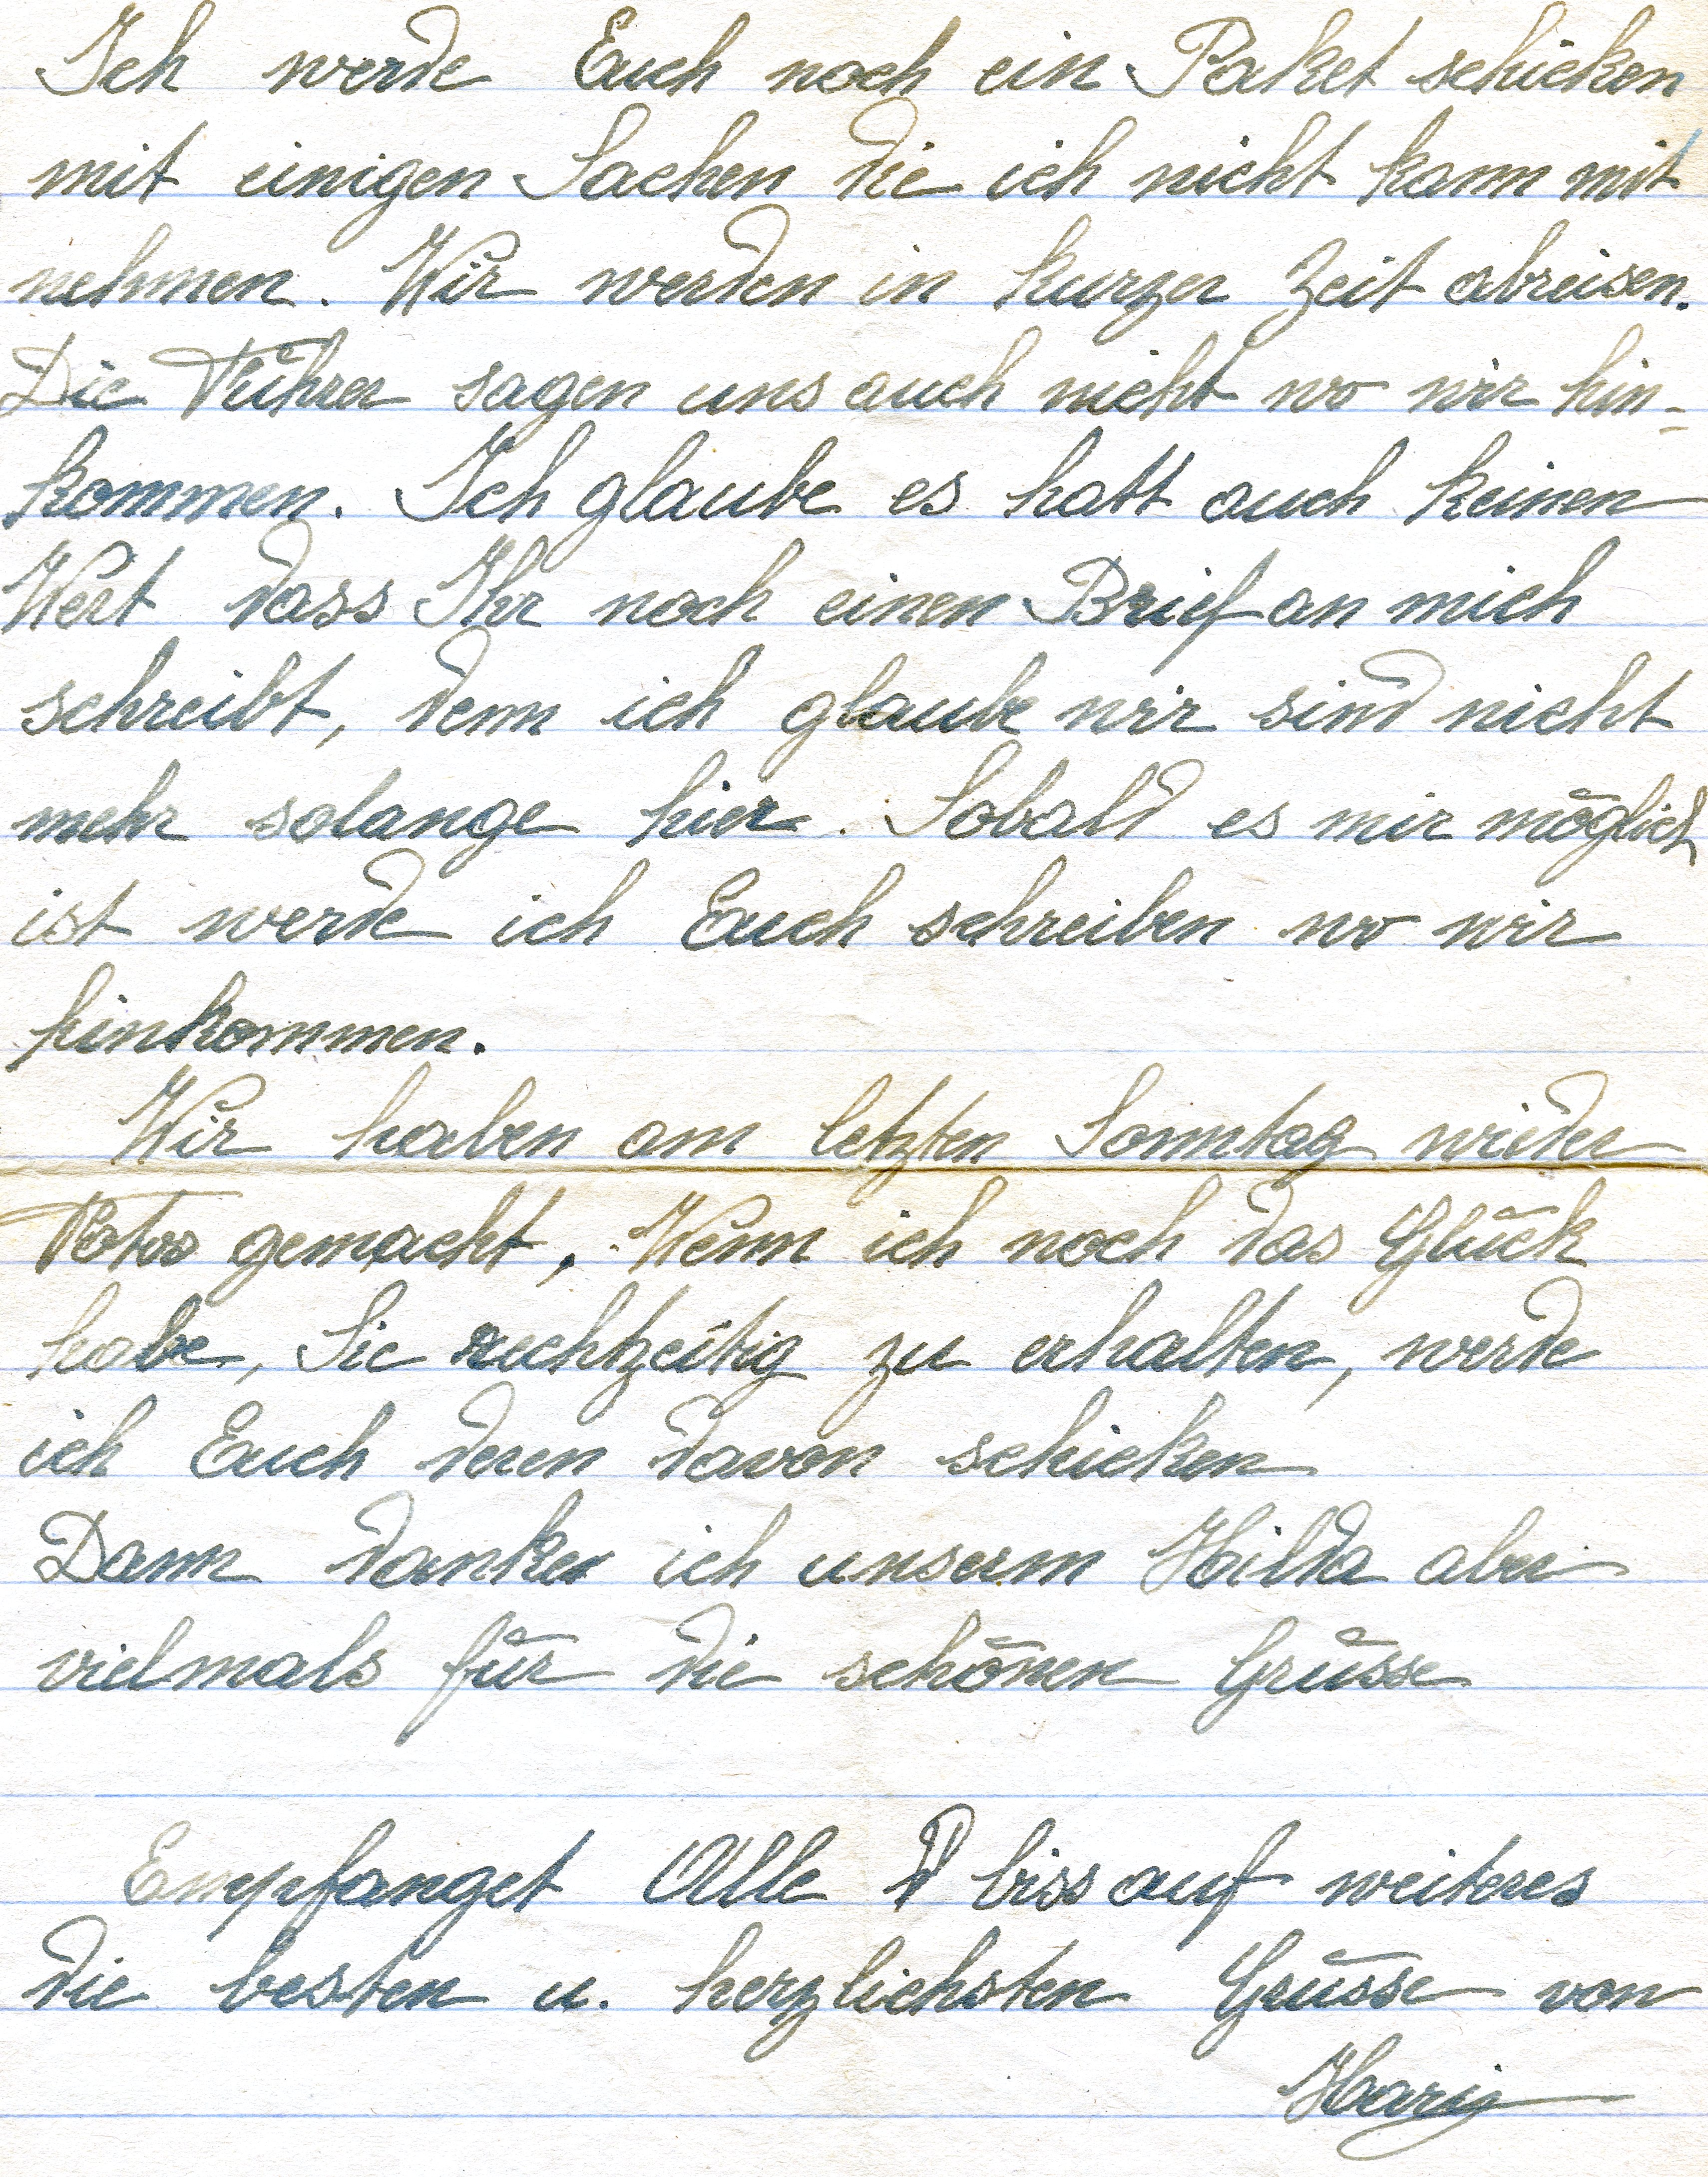 Ich werde Euch noch ein Paket schicken
mit einigen Sachen die ich nicht kann mit
nehmen. Wir werden in kurzer Zeit abreisen.
Die Führer sagen uns auch nicht wo wir hin-
kommen. Ich glaube es hatt auch keinen
Wert dass Ihr noch einen Brief an mich
schreibt, denn ich glaube wir sind nicht
mehr solange hier. Sobald es mir möglich
ist werde ich Euch schreiben wo wir
hinkommen.
Wir haben am letzten Sonntag wieder
Fotos gemacht. Wenn ich noch das Glück
habe, Sie rechtzeitig zu erhalten, werde
ich Euch deren davon schicken
Dann danke ich unserm Hilda aber
vielmals für die schönen Grüsse
Empfanget Alle biss auf weiteres
die besten u. herzlichsten Grüsse von